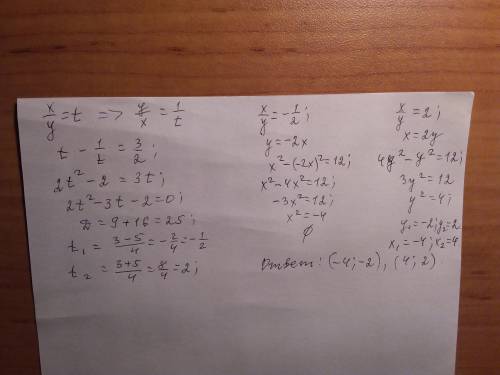 x/y = t => y/x = 1/t
t - 1/t = 3/2;
2t² - 2 = 3t;
2t² - 3t - 2 = 0;
D = 9 + 16 = 25;
t₁ = (3-5)/4 = -2/4 = -1/2
t₂ = (3+5)/4 = 8/4 = 2;
x/y = -1/2;
y = -2x
x² - (-2x)² = 12;
x² - 4x² = 12;
-3x² = 12;
x² = -4
∅
x/y = 2;
x = 2y
4y² - y² = 12;
3y² = 12
y² = 4;
y₁ = -2; y₂ = 2
x₁ = -4; x₂ = 4
Ответ: (-4; -2), (4; 2)